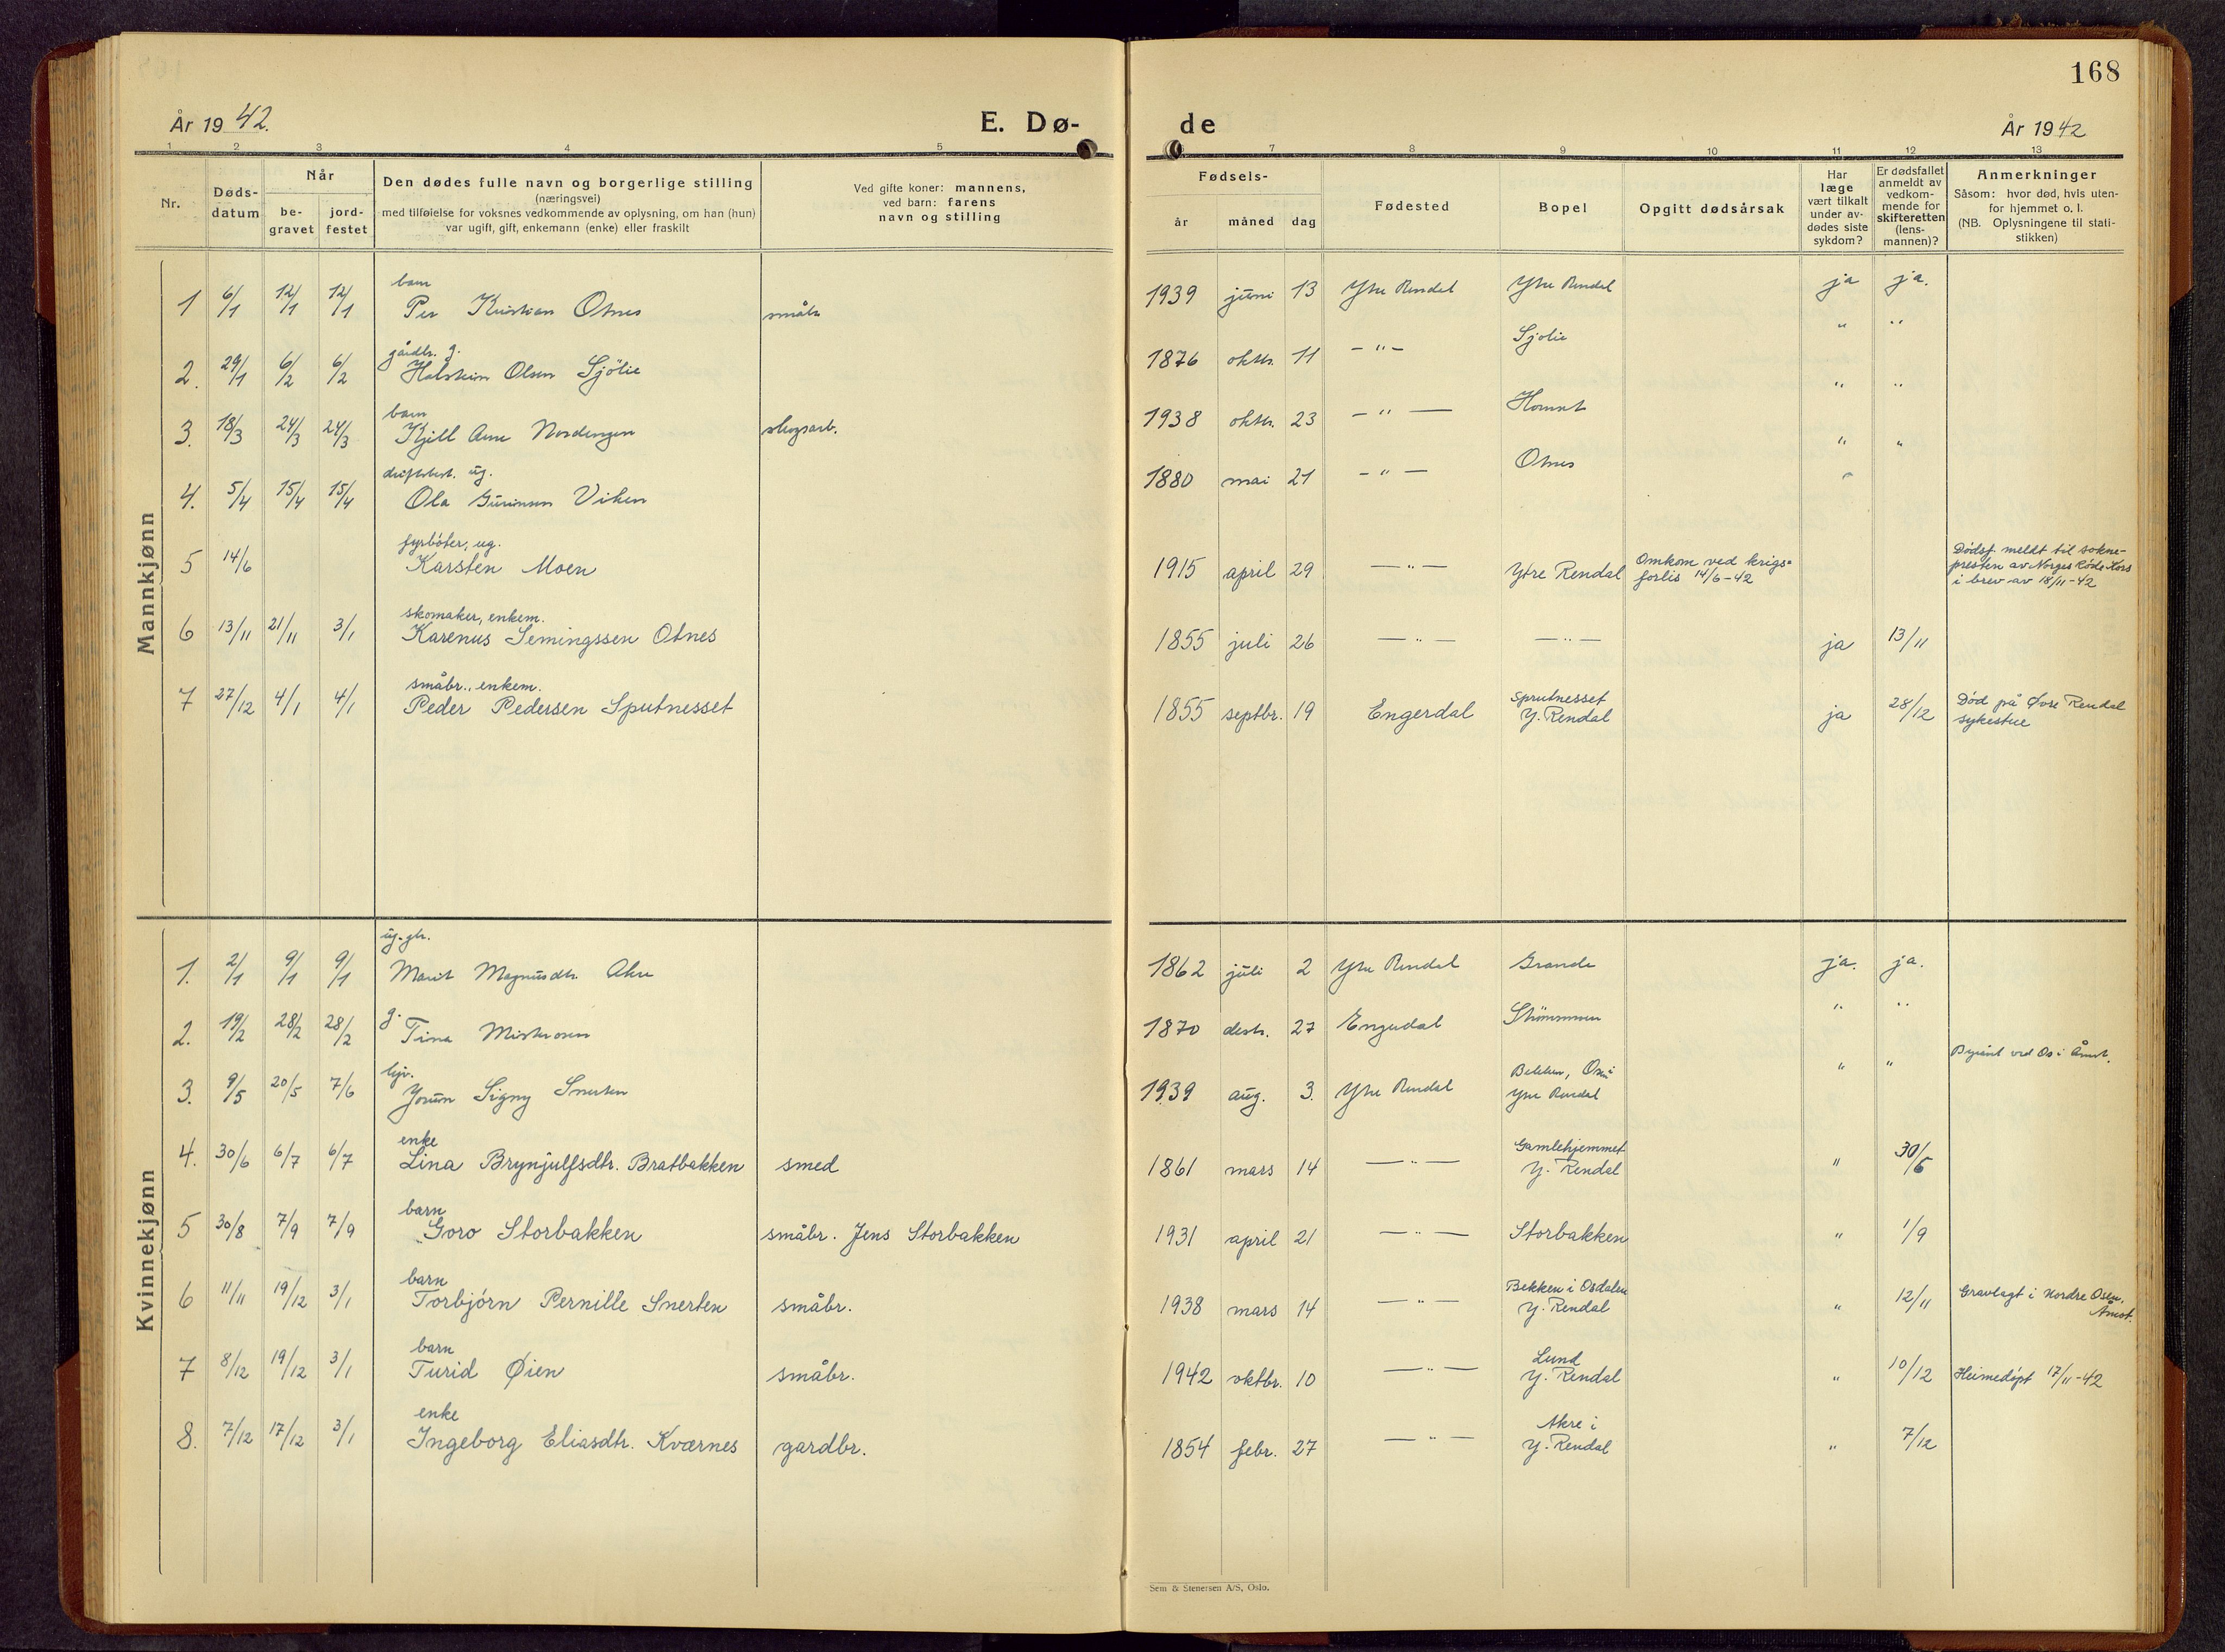 168
År 1942.
E. Dø-
de
År 1942
1 2 3 4 5
7 8 9 10 11 12 13
Nr.
Døds-
datum
Når
be-
gravet
jord-
festet
Den dødes fulle navn og borgerlige stilling
(næringsvei)
med tilføielse for voksnes vedkommende av oplysning, om han (hun)
var ugift, gift, enkemann (enke) eller fraskilt
Ved gifte koner: mannens,
ved barn: farens
navn og stilling
Fødsels-
år måned dag
Fødested
Bopel
Opgitt dødsårsak
Har
læge
vært tilkalt
under av-
dødes siste
sykdom?
Er dødsfallet
anmeldt av
vedkom-
mende for
skifteretten
(lens-
mannen)?
Anmerkninger
Såsom: hvor død, hvis uten-
for hjemmet o. l.
(NB. Oplysningene til stati-
stikken)
Mannkjønn
barn
1 6/1 12/1 12/1 Per Kristian Otnes småbr. 1939 juni 13 Ytre Rendal Ytre Rendal ja ja.
gårdbr. g.
2. 29/1 6/2 6/2 Halstein Olsen Sjölie 1876 oktbr. 11 — " — Sjölie " "
barn
3. 18/3 24/3 24/3 Kjell Arne Nordengen skogsarb. 1938 oktbr. 23 — " — Hornset " "
driftsbest. ug.
4. 5/4 15/4 15/4 Ola Gurimsen Viken 1880 mai 21 — " — Otnes " "
fyrbøter, ug.
5 14/6 Karsten Moen 1915 april 29 — " — Ytre Rendal
Omkom ved krigs-
forlis 14/6-42
Dødsf. meldt til sokne-
presten av Norges Røde Kors
i brev av 18/11-42
skomaker, enkem.
6 13/11 21/11 3/1 Karenus Semingssen Otnes 1855 juli 26 — " — — " — ja 13/11
småbr., enkem.
7 27/12 4/1 4/1 Peder Pedersen Sputnesset 1855 septbr. 19 Engerdal
Sprutnesset
Y. Rendal
ja 28/12
Død på Øvre Rendal
sykestue
Kvinnekjønn
ug.
1. 2/1 9/1 9/1 Marit Magnusdtr. Akre 1862 juli 2 Ytre Rendal Grande ja. ja.
g.
2. 19/2 28/2 28/2 Tina Misterosen 1870 desbr. 27 Engerdal Strömmen " "
3. 9/5 20/5 7/6 Jorun Signy Snerten 1939 aug. 3. Ytre Rendal
Bekken, Osen
Ytre Rendal
" "
ved Os i Åmot.
enke
4. 30/6 6/7 6/7 Lina Brynjulfsdtr. Bratbakken smed 1861 mars 14 — " —
Gamlehjemmet
Y. Rendal
" 30/6
barn
5 30/8 7/9 7/9 Goro Storbakken småbr. Jens Storbakken 1931 april 21 — " — Storbakken " 1/9
barn
6 11/11 19/12 3/1 Torbjørn Pernille Snerten småbr. 1938 mars 14 — " —
Bekken i Osdalen
Y. Rendal
" 12/11
Gravlagt i Nordre Osen,
Åmot.
barn
7 8/12 19/12 3/1 Turid Øien småbr. 1942 oktbr. 10 — " —
Lund
Y. Rendal
" 10/12 Heimedøpt 17/11-42
enke
8. 7/12 17/12 3/1 Ingeborg Eliasdtr. Kværnes gardbr. 1854 febr. 27 — " —
Akre i
Y. Rendal
" 7/12
Sem & Stenersen A/S, Oslo.